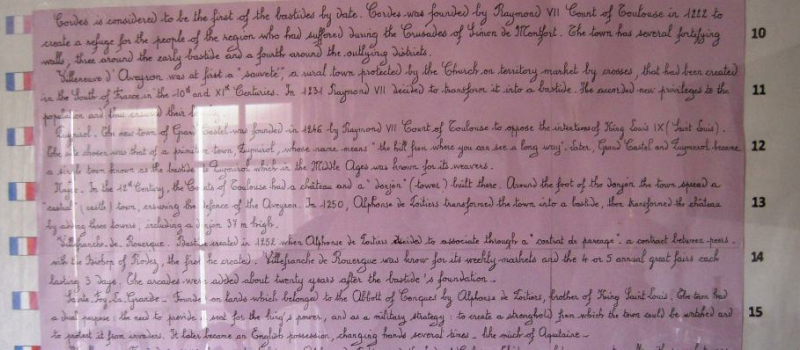 Cordes is considered to be the first of the bastides by date. Cordes was founded by Raymond VII Count of Toulouse in 1222 to
10
create a refuge for the people of the region who had suffered during the Crusades of Simon de Montfort. The town has several fortifying
walls, three around the early bastide and a fourth around the outlying districts.
Villeneuve d'Aveyron was at first a "sauveté", a rural town protected by the Church or territory market by crosses, that had been created
11
in the South of France in the 10st and XIst Centuries. In 1231 Raymond VII decided to transform it into a bastide. He accorded new privileges to the
population and thus ensured their
The new town of Grand Castel was founded in 1246 by Raymond VII Count of Toulouse to oppose the intentions of King Louis IX (Saint Louis).
12
The site chosen was that of a primitive town, whose name means "the hill from where you can see a long way". Later, Grand Castel and became
a single town known as the bastide which in the Middle Ages was known for its weavers.
Najac. In the 12st Century, the Counts of Toulouse had a château and a "donjon" (tower) built there. Around the foot of the donjon the town spread a
13
"castral" (castle) town, ensuring the defence of the Aveyron. In 1250, Alphonse de Poitiers transformed the town into a bastide, then transformed the château
by adding three towers, including a donjon 37 m high.
Villefranche. de. Rouergue. Bastide created in 1252 when Alphonse de Poitiers decided to associate through a "contrat de pareage". a contract between peers.
14
with the of Rodez, the first be created. Villefranche de Rouergue was know for its weekly markets and the 4 or 5 annual great fairs each
lasting 3 days. The arcades were added about twenty years after the bastide's foundation.
Sainte. Foy. La. Grande. Founded on lands which belonged to the Abbott of Conques by Alphonse de Poitiers, brother of King Saint-Louis. The town had
15
a dual purpose: the need to provide a seat for the king's power, and as a military strategy: to create a stronghold from which the town could be watched and
to protect it from invaders. It later became an English possession, changing hands several times. like much of Aquitaine.